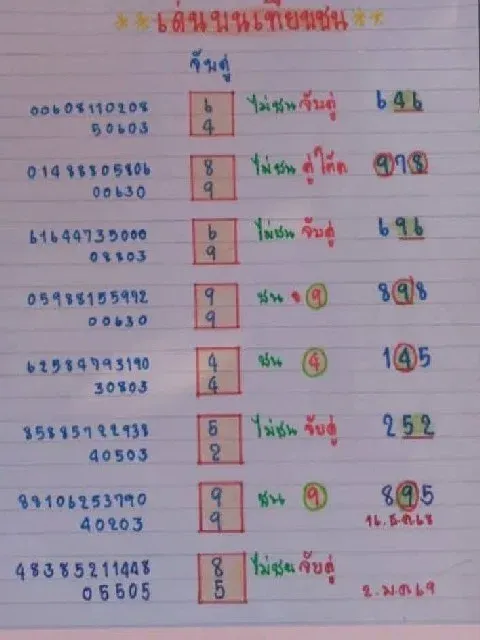 **เด่นบนเทียมชน**
จับคู่
00608110208 6 ไม่ชน จับคู่ 646
50603 4
01488805806 8 ไม่ชน คู่โต๊ด 978
00630 9
61644735000 6 ไม่ชน จับคู่ 696
08803 9
05988155992 9 ชน 9 898
00630 9
62584793190 4 ชน 4 145
30803 4
85885722938 5 ไม่ชน จับคู่ 252
40503 2
88106253790 9 ชน 9 895
40203 9 16.ธ.ค 68
48385211448 8 ไม่ชน จับคู่
05505 5 2.ม.ค 69